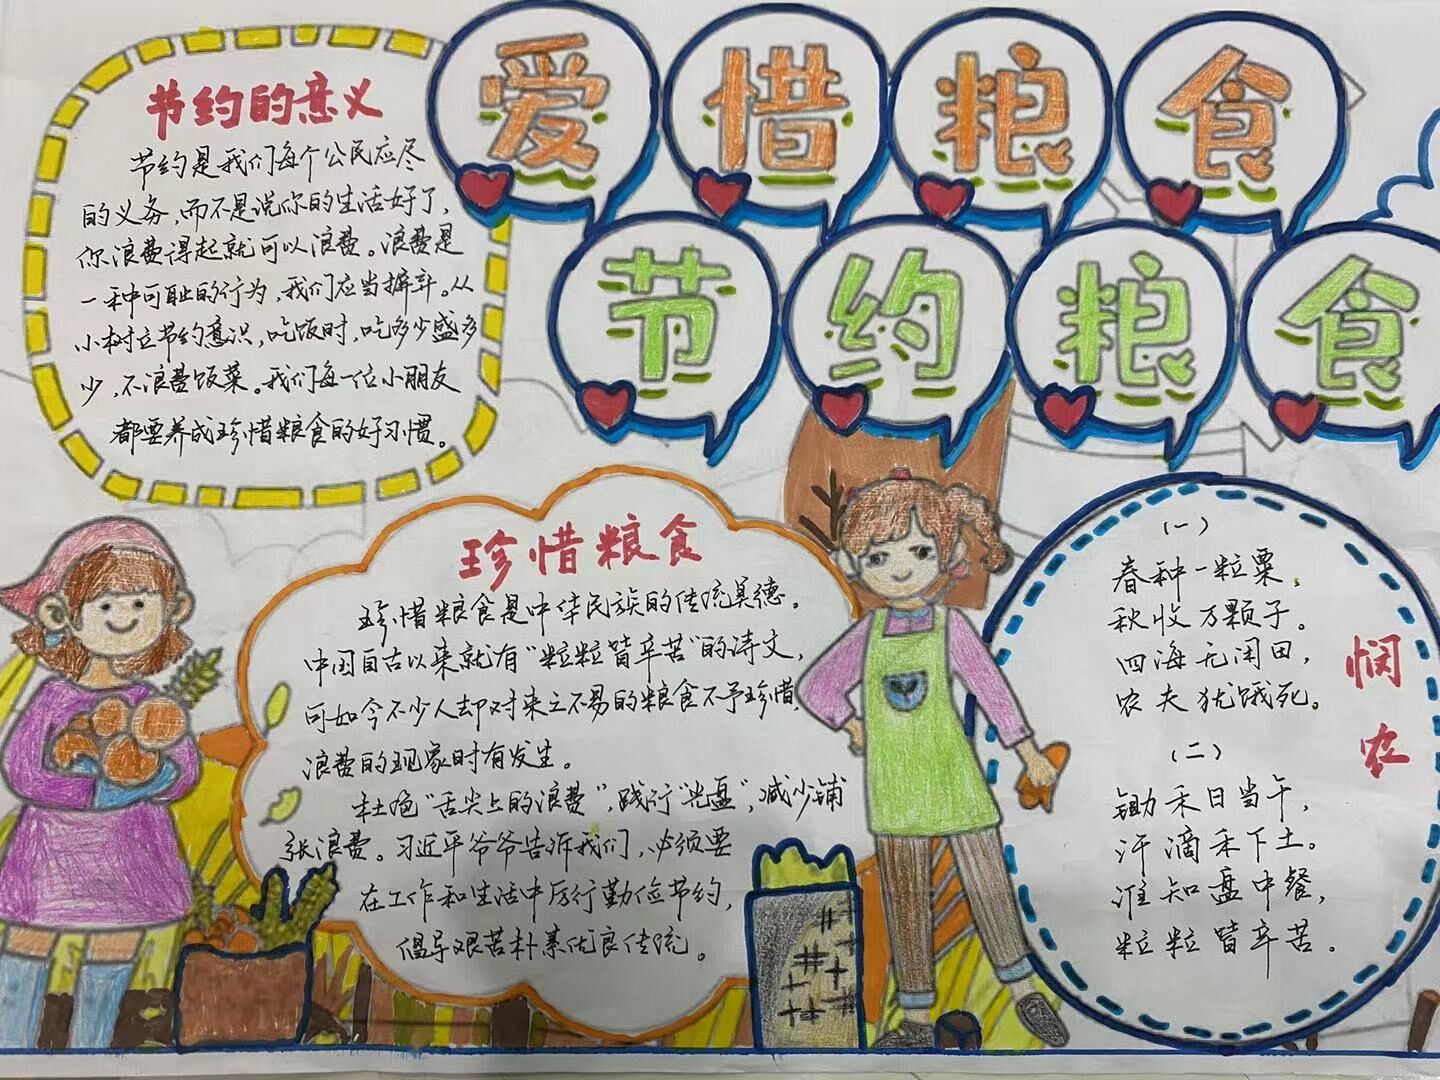 爱惜粮食
节约粮食
节约的意义
节约是我们每个公民应尽
的义务,而不是说你的生活好了,
你浪费得起就可以浪费。浪费是
一种可耻的行为,我们应当摒弃。从
小树立节约意识,吃饭时,吃多少盛多
少,不浪费饭菜。我们每一位小朋友
都要养成珍惜粮食的好习惯。
珍惜粮食
珍惜粮食是中华民族的传统美德。
中国自古以来就有“粒粒皆辛苦”的诗文,
可如今不少人却对来之不易的粮食不予珍惜。
浪费的现象时有发生。
杜绝“舌尖上的浪费”,践行“光盘”,减少铺
张浪费。习近平爷爷告诉我们,必须要
在工作和生活中厉行勤俭节约,
倡导艰苦朴素优良传统。
悯农
(一)
春种一粒粟,
秋收万颗子。
四海无闲田,
农夫犹饿死。
(二)
锄禾日当午,
汗滴禾下土。
谁知盘中餐,
粒粒皆辛苦。